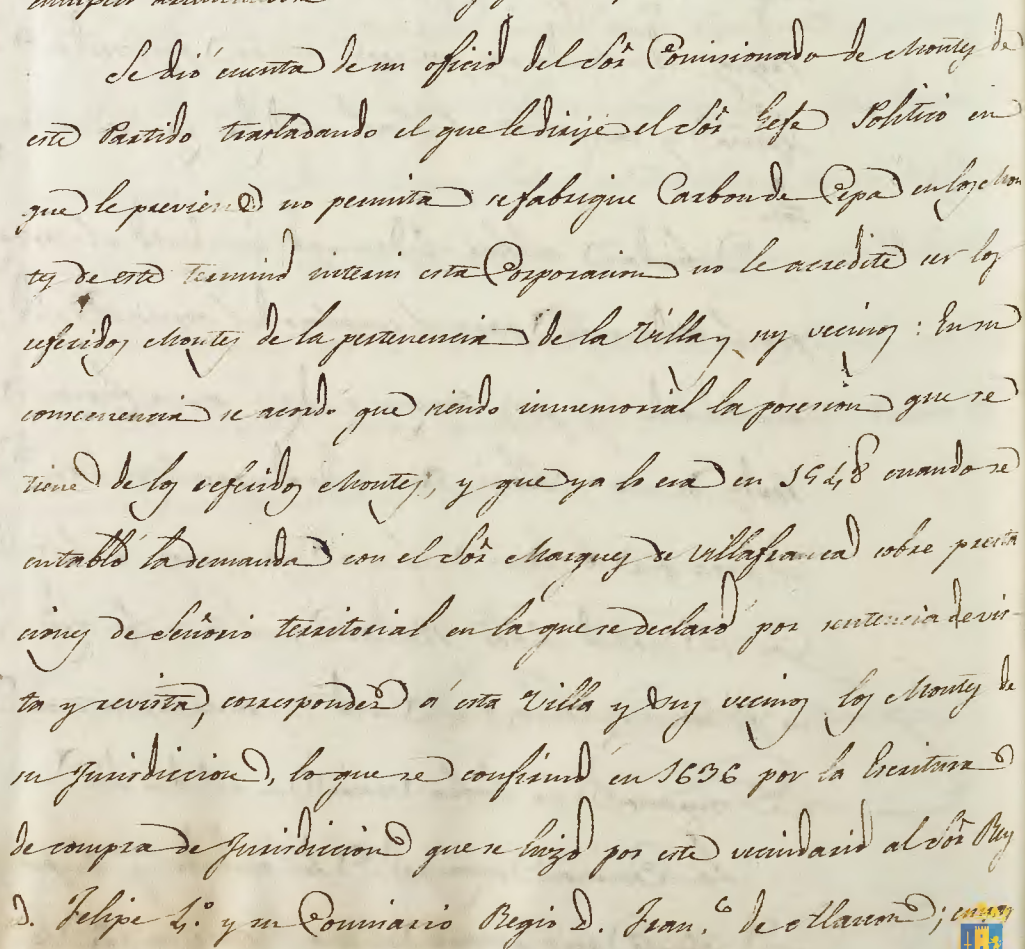 Se dió cuenta de un oficio del Sōr Comisionado de Montes de
este Partido trasladando el que le dirije el Sōr Gefe Politico en
que le previene no permita se fabrique Carbon de Cepa en los Mon
tes de este termino interin esta Corporacion no le acredite ser los
referidos Montes de la pertenencia de la Villa y sus vecinos: En su
consecuencia se acordó que siendo inmemorial la posesion que se
tiene de los referidos Montes, y que ya lo era en 1548 cuando se
entabló la demanda con el Sōr Marques de Villafranca sobre presta
ciones de Señorio territorial en la que se declaró por sentencia de vis-
ta y revista, corresponder á esta Villa y sus vecinos los Montes de
su Jurisdiccion, lo que se confirmó en 1636 por la Escritura
de compra de Jurisdiccion que se hizo por este vecindario al Sōr Rey
D. Felipe 4.º y su Comisario Regio D. Fran.co de Alarcon;